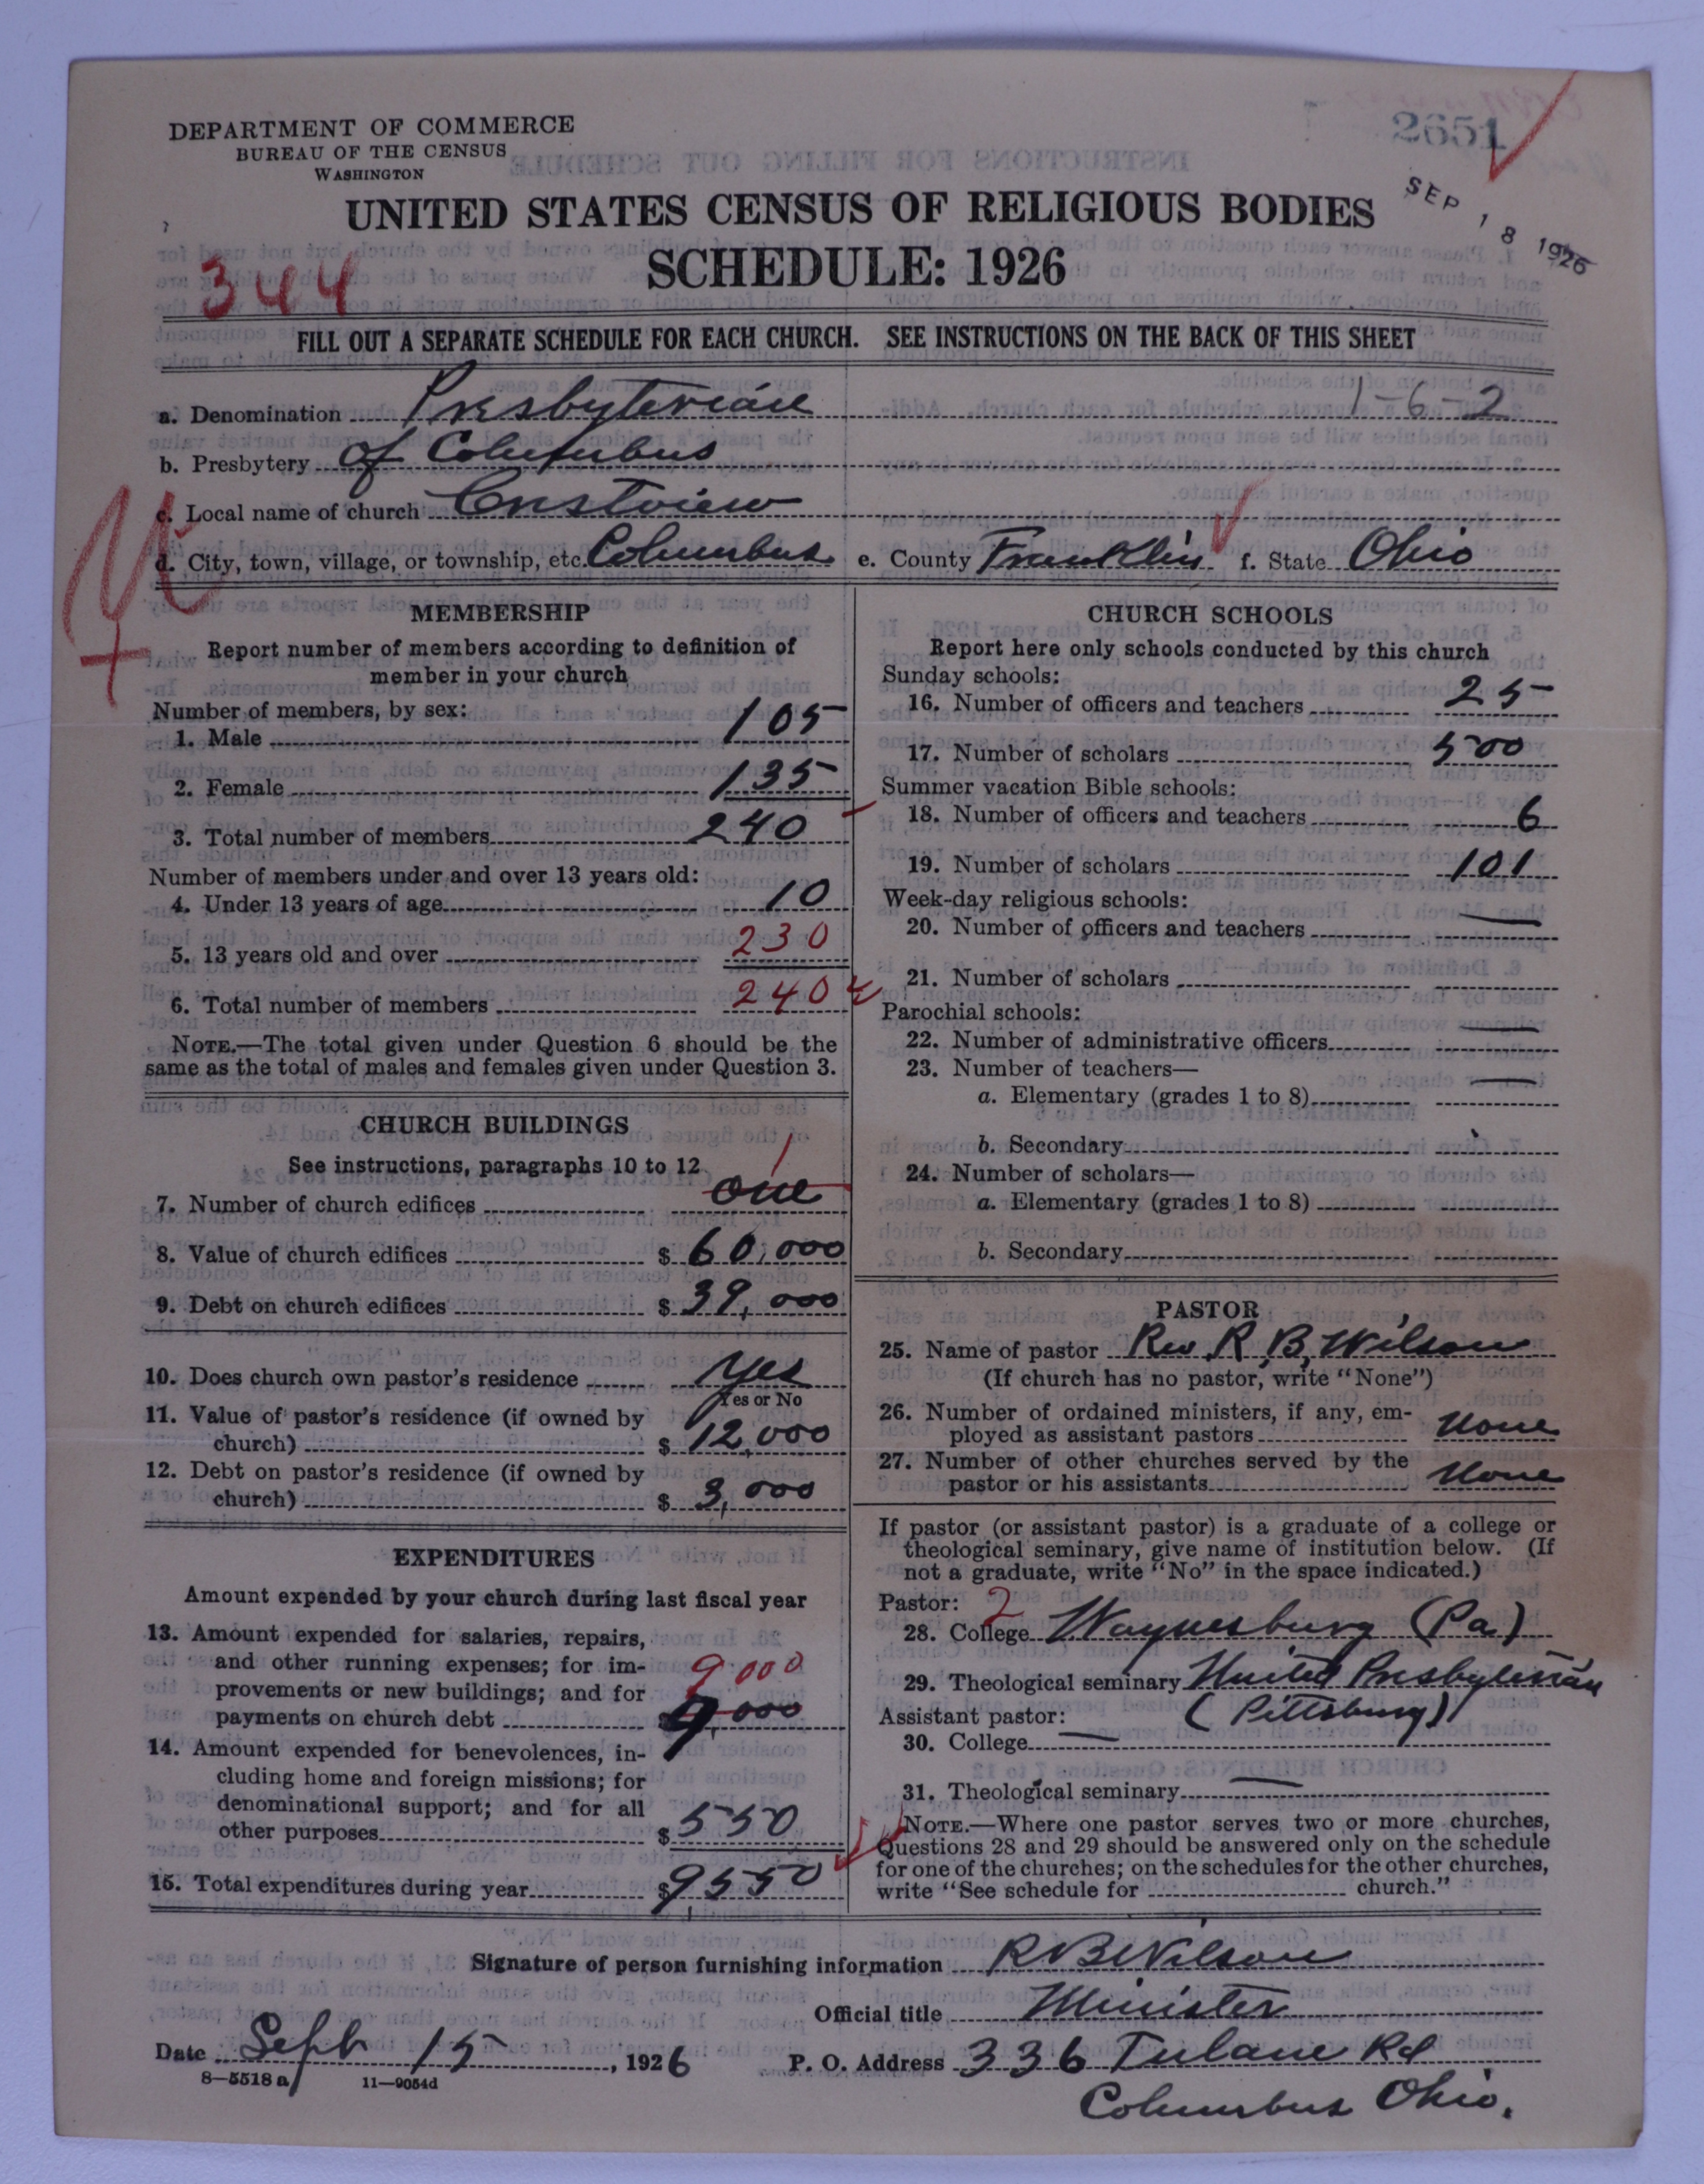 2651
DEPARTMENT OF COMMERCE
BUREAU OF THE CENSUS
WASHINGTON
SEP 18 1926
UNITED STATES CENSUS OF RELIGIOUS BODIES
SCHEDULE: 1926
344
FILL OUT A SEPARATE SCHEDULE FOR EACH CHURCH. SEE INSTRUCTIONS ON THE BACK OF THIS SHEET
a. Denomination Presbyterian 1-6-2
b. Presbytery of Columbus
c. Local name of church Crestview
d. City, town, village, or township, etc. Columbus e. County Franklin f. State Ohio
MEMBERSHIP
Report number of members according to definition of
member in your church
Number of members, by sex:
1. Male 105
2. Female 135
3. Total number of members 240
Number of members under and over 13 years old:
4. Under 13 years of age 10
5. 13 years old and over 230
6. Total number of members 240
NOTE.—The total given under Question 6 should be the
same as the total of males and females given under Question 3.
CHURCH BUILDINGS
See instructions, paragraphs 10 to 12
1
7. Number of church edifices one
8. Value of church edifices $ 60,000
9. Debt on church edifices $ 39,000
10. Does church own pastor's residence yes
Yes or No
11. Value of pastor's residence (if owned by
church) $ 12,000
12. Debt on pastor's residence (if owned by
church) $ 3,000
EXPENDITURES
Amount expended by your church during last fiscal year
13. Amount expended for salaries, repairs,
and other running expenses; for im-
provements or new buildings; and for 9000
payments on church debt 9,000
14. Amount expended for benevolences, in-
cluding home and foreign missions; for
denominational support; and for all
other purposes $ 550
15. Total expenditures during year $ 9550
CHURCH SCHOOLS
Report here only schools conducted by this church
Sunday schools:
16. Number of officers and teachers 25
17. Number of scholars 500
Summer vacation Bible schools:
18. Number of officers and teachers 6
19. Number of scholars 101
Week-day religious schools:
20. Number of officers and teachers —
21. Number of scholars
Parochial schools:
22. Number of administrative officers —
23. Number of teachers—
a. Elementary (grades 1 to 8) —
b. Secondary
24. Number of scholars—
a. Elementary (grades 1 to 8)
b. Secondary
PASTOR
25. Name of pastor Rev. R. B. Wilson
(If church has no pastor, write "None")
26. Number of ordained ministers, if any, em-
ployed as assistant pastors None
27. Number of other churches served by the
pastor or his assistants None
If pastor (or assistant pastor) is a graduate of a college or
theological seminary, give name of institution below. (If
not a graduate, write "No" in the space indicated.)
Pastor: 2
28. College Waynesburg (Pa)
29. Theological seminary United Presbyterian
Assistant pastor: (Pittsburg)
30. College —
31. Theological seminary —
NOTE.—Where one pastor serves two or more churches,
Questions 28 and 29 should be answered only on the schedule
for one of the churches; on the schedules for the other churches,
write "See schedule for church."
Signature of person furnishing information R B Wilson
Official title Minister
Date Sept 15, 1926 P. O. Address 336 Tulane Rd
8—5518 a 11—9054d
Columbus Ohio.